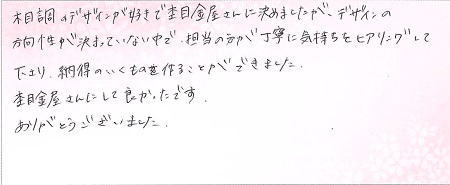 木目調のデザインが好きで杢目金屋さんに決めましたが、デザインの
方向性が決まっていない中で、担当の方が丁寧に気持ちをヒアリングして
下さり、納得のいくものを作ることができました。
杢目金屋さんにして良かったです。
ありがとうございました。